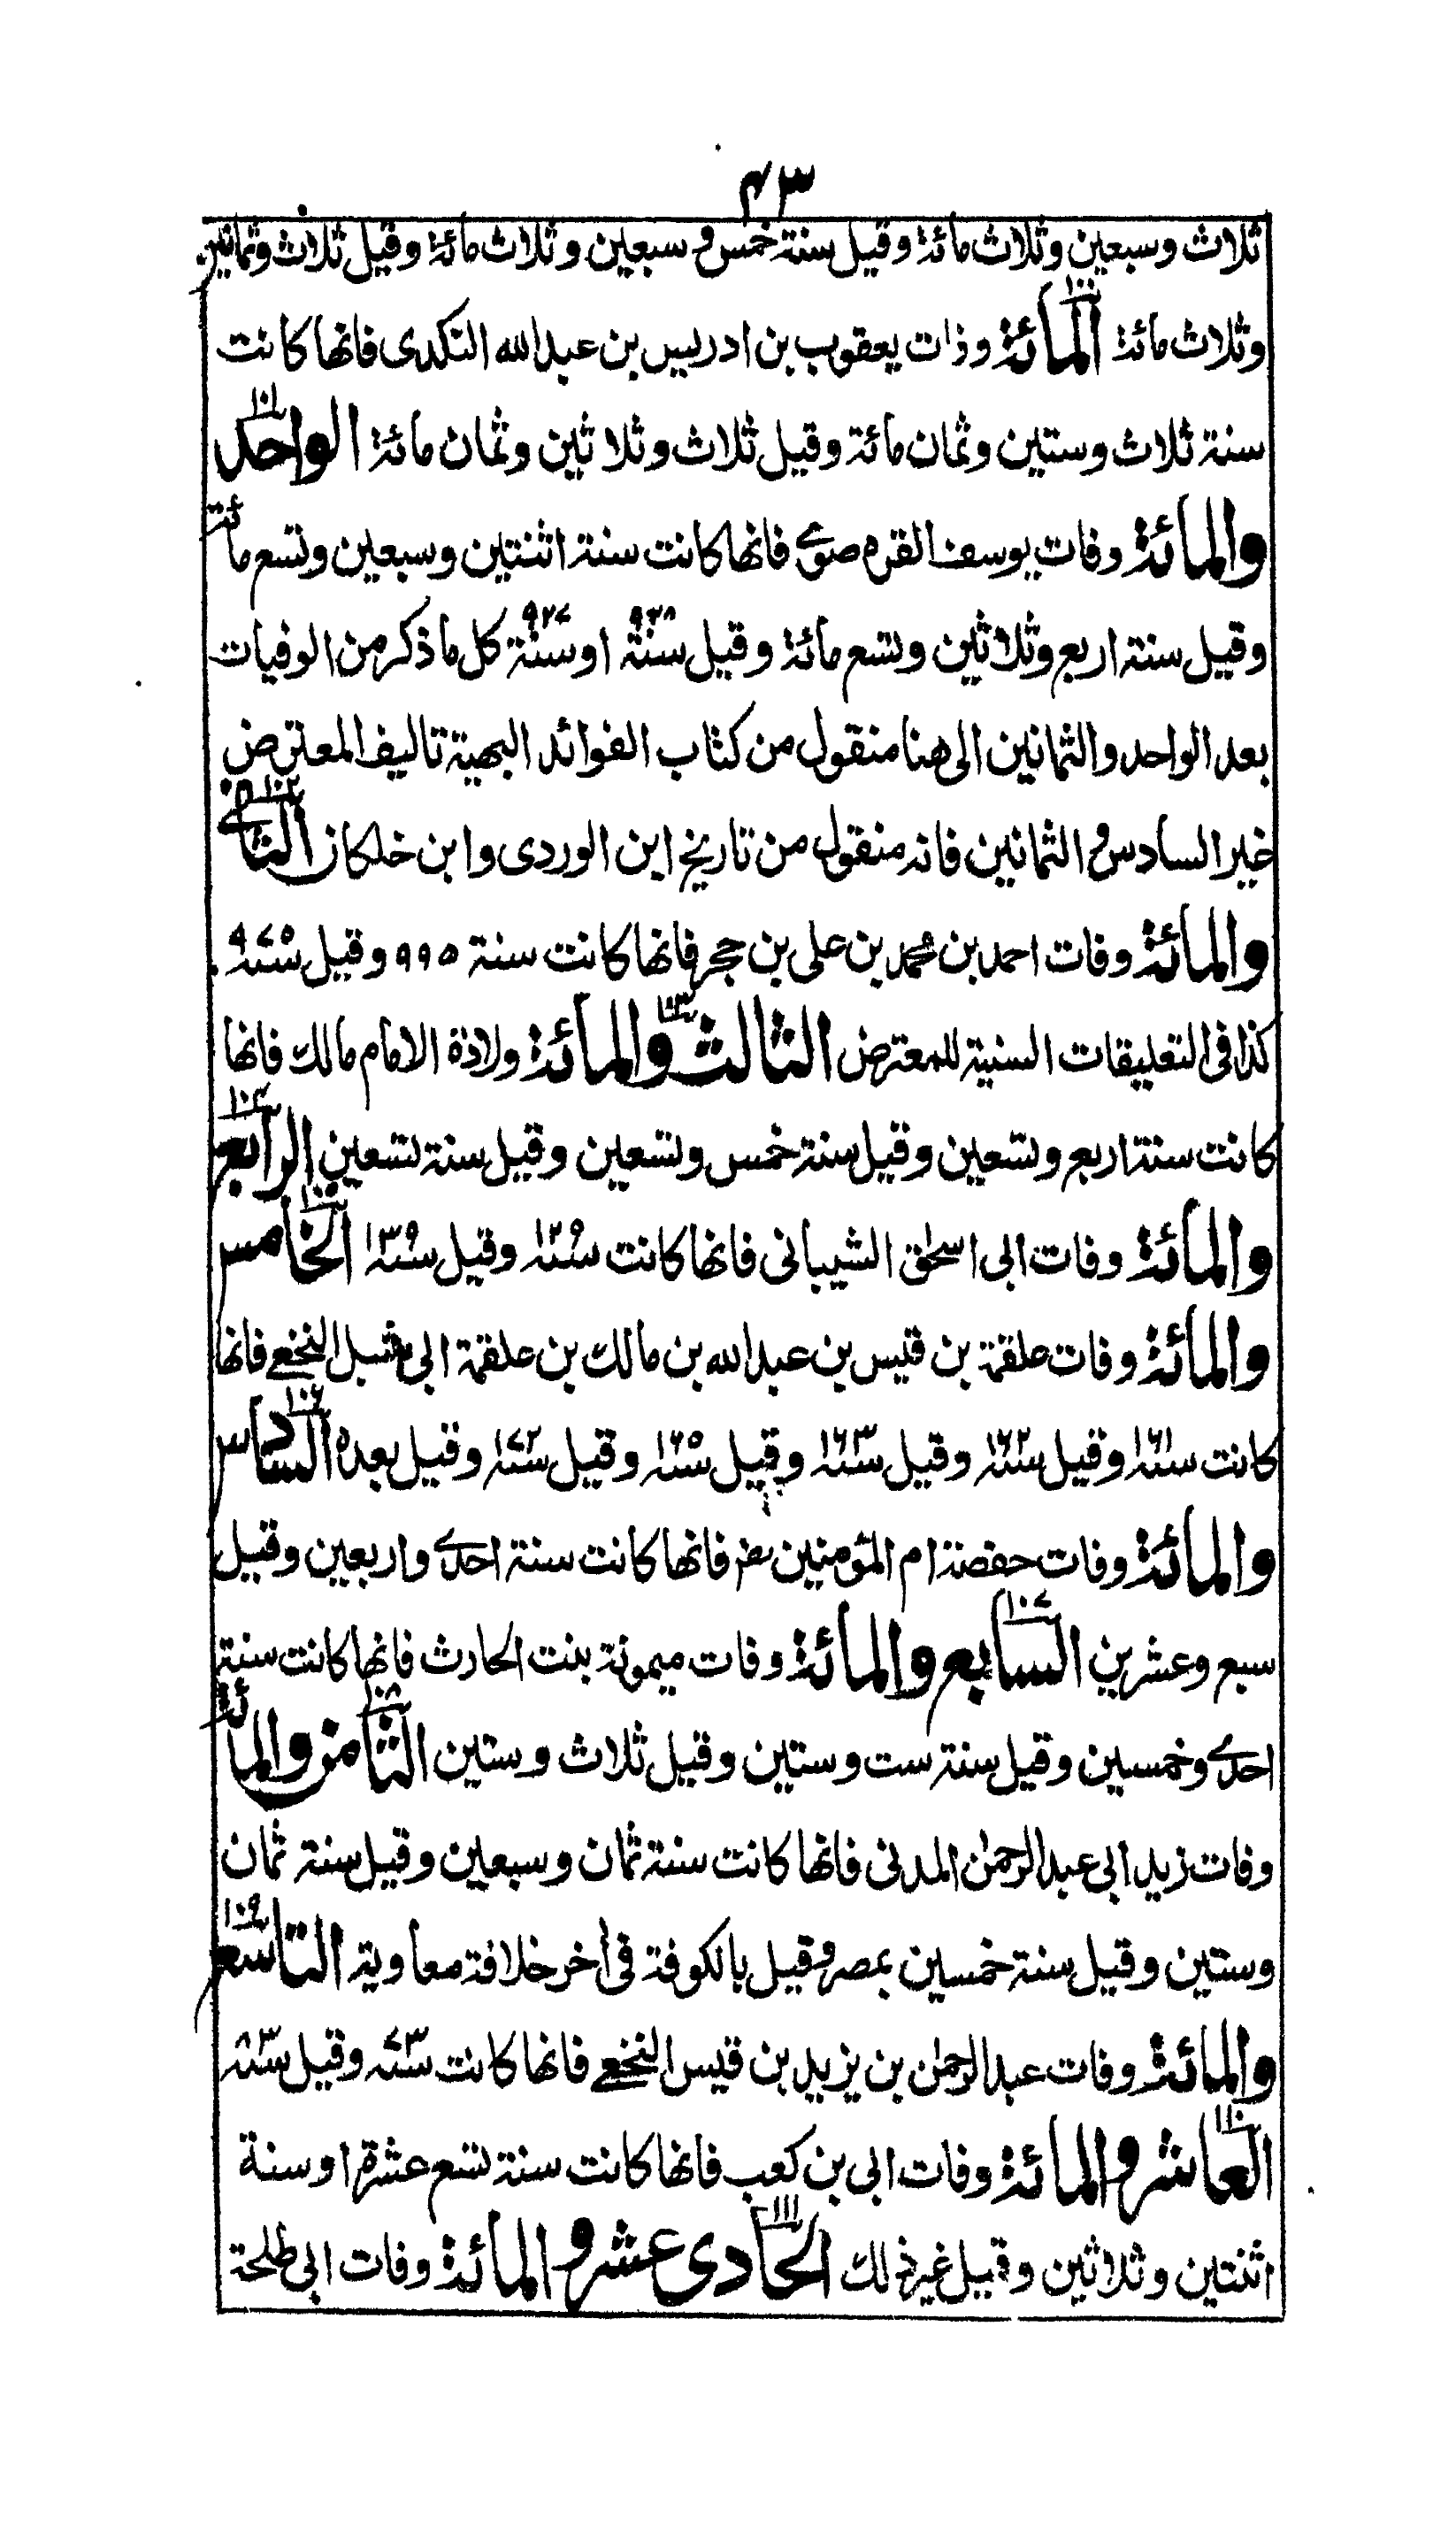 ۴۳
ثلاث وسبعين وثلاث مائة وقيل سنة خمس و سبعين و ثلاث مائة وقيل ثلاث وثمانين
وثلاث مائة المائة ۱۰۰ وذات يعقوب بن ادريس بن عبد الله النكدى فانها كانت
سنة ثلاث وستين وثمان مائة وقيل ثلاث وثلاثين وثمان مائة الواحد ۱۰۱
والمائة وفات يوسف القره صوے فانها كانت سنة اثنتين وسبعين وتسع مائة
وقيل سنة اربع وثلاثين وتسع مائة وقيل سنة ۹۳۸ او سنة ۹۲۷ كل ما ذكر من الوفيات
بعد الواحد والثمانين الى هنا منقول من كتاب الفوائد البهية تاليف المعترض
غير السادس والثمانين فانه منقول من تاريخ ابن الوردى وابن خلكان الثانے ۱۰۲
والمائة وفات احمد بن محمد بن على بن حجر فانها كانت سنة ۹۹۵ وقيل سنة ۹۷۵
كذا فى التعليقات السنية للمعترض الثالث والمائة ۱۰۳ ولادة الامام مالك فانها
كانت سنة اربع وتسعين وقيل سنة خمس وتسعين وقيل سنة تسعين الرابع ۱۰۴
والمائة وفات ابى اسحٰق الشيبانى فانها كانت سنة ۱۲۹ وقيل سنة ۱۳۹ الخامس ۱۰۵
والمائة وفات علقمة بن قيس بن عبد الله بن مالك بن علقمة ابى شبل النخعے فانها
كانت سنة ۱۶۱ وقيل سنة ۱۶۲ وقيل سنة ۱۶۳ وقيل سنة ۱۶۵ وقيل سنة ۱۷۲ وقيل بعده السادس ۱۰۶
والمائة وفات حفصة ام المؤمنين رض فانها كانت سنة احدے واربعين وقيل
سبع وعشرين السابع ۱۰۷ والمائة وفات ميمونة بنت الحارث فانها كانت سنة
احدے وخمسين وقيل سنة ست وستين وقيل ثلاث وستين الثامن ۱۰۸ والمائة
وفات زيد ابى عبد الرحمٰن المدنى فانها كانت سنة ثمان وسبعين وقيل سنة ثمان
وستين وقيل سنة خمسين بمصر وقيل بالكوفة فى اٰخر خلافة معاوية التاسع ۱۰۹
والمائة وفات عبد الرحمٰن بن يزيد بن قيس النخعے فانها كانت سنة ۷۳ وقيل سنة ۸۳
العاشر ۱۱۰ والمائة وفات ابى بن كعب فانها كانت سنة تسع عشرة او سنة
اثنتين وثلاثين وقيل غير ذلك الحادى عشر ۱۱۱ والمائة وفات ابى طلحة